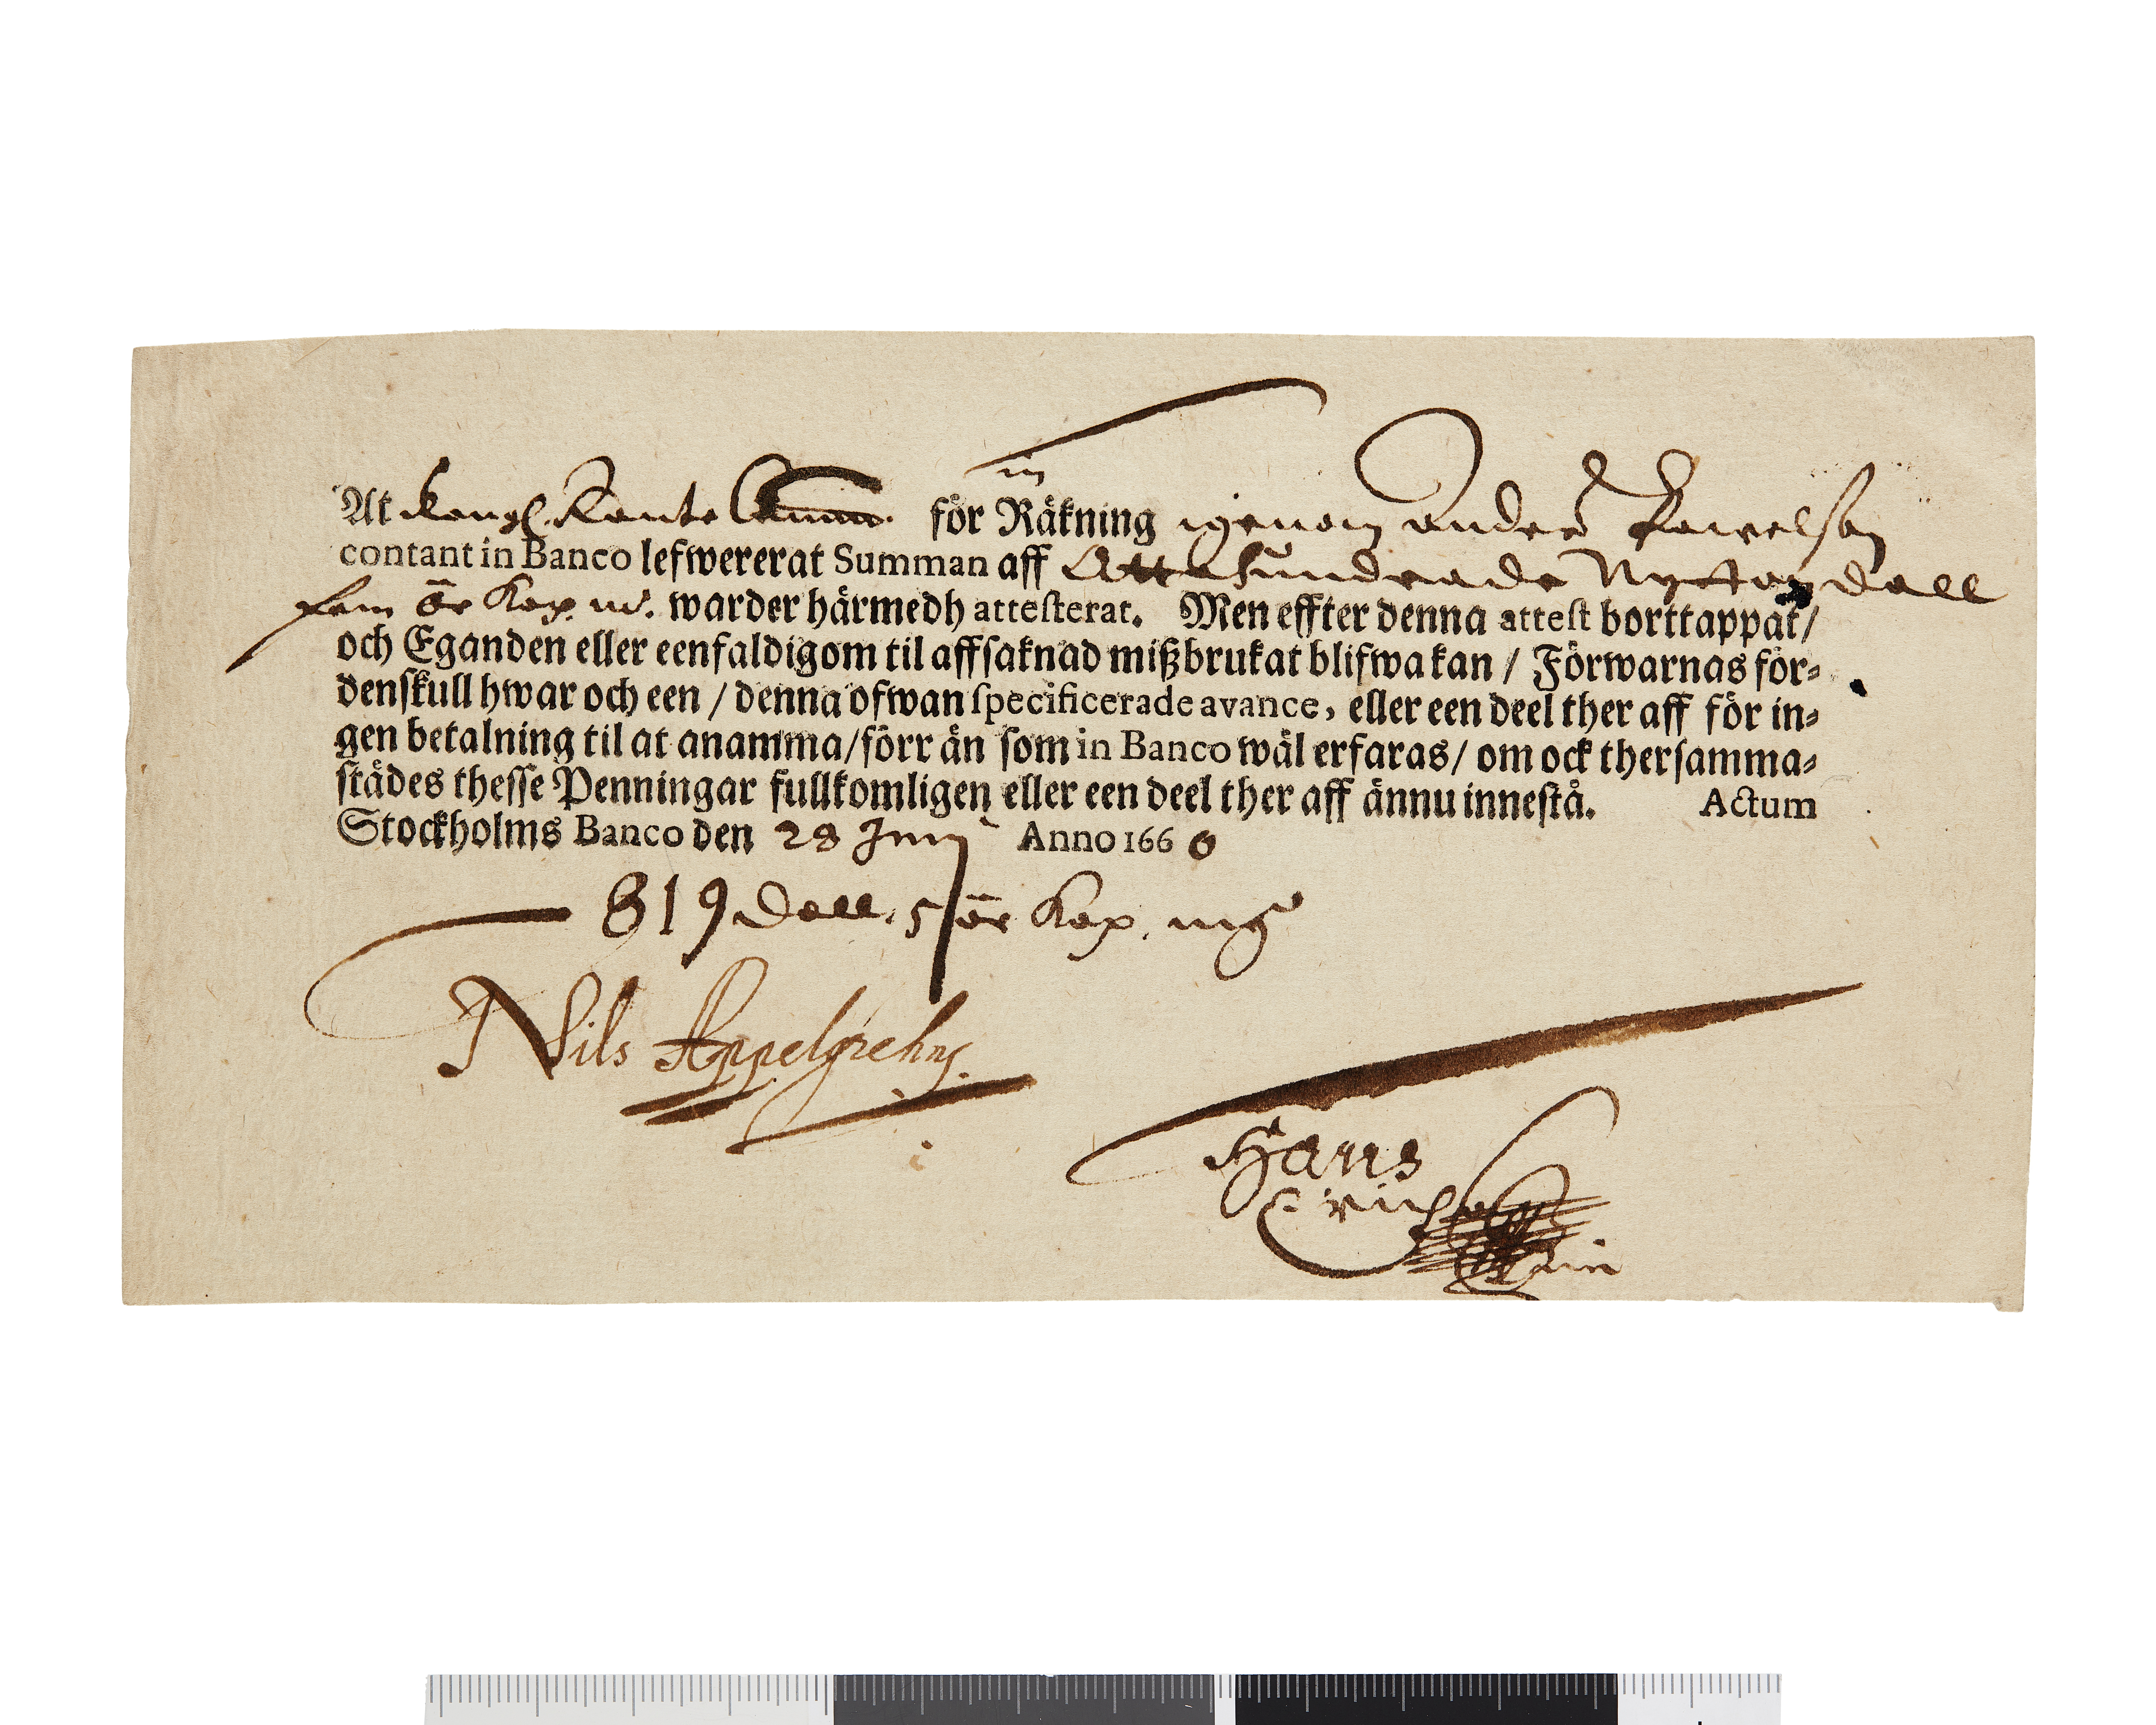 At Kongl. Ränte Cammer för Räkning igenom Anders Pawelson
contant in Banco lefwererat Summan aff Åttahundrade Nytton dall
fem ör Kop. m. warder härmedh attesterat. Men effter denna attest borttappat/
och Eganden eller eenfaldigom til affsaknad mißbrukat blifwa kan / Förwarnas för-
denskull hwar och een / denna ofwan specificerade avance, eller een deel ther aff för in-
gen betalning til at anamma/förr än som in Banco wäl erfaras/ om ock thersamma-
städes thesse Penningar fullkomligen eller een deel ther aff ännu innestå. Actum
Stockholms Banco den 28 Junij Anno 1666
819 Dall. 5 ör Kop. mt
Nils Appelgrehn
Hans